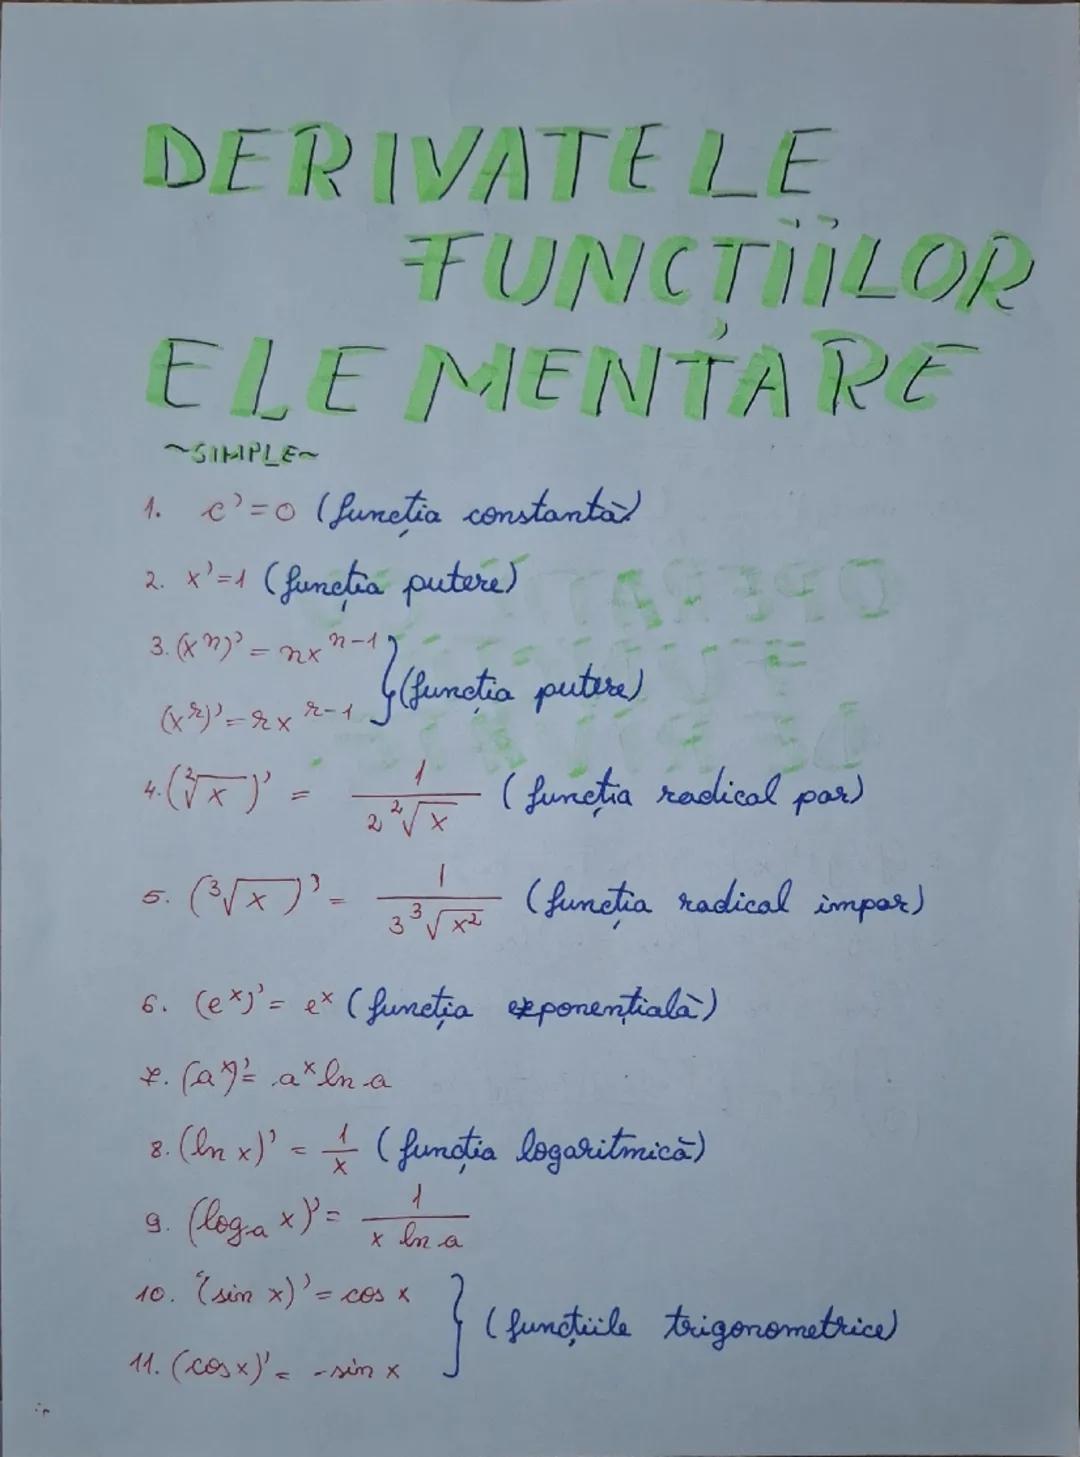 DERIVATELE
FUNCȚIILOR
ELEMENTARE
~SIMPLE~
1. c' = 0 (funcția constantă)
2. x' = 1 (funcția putere)
3. (xⁿ)' = nxⁿ⁻¹ } (funcția putere)
(xʳ)' = rxʳ⁻¹
4. (²√x)' = 1/(2 ²√x) (funcția radical par)
5. (³√x)' = 1/(3 ³√x²) (funcția radical impar)
6. (eˣ)' = eˣ (funcția exponențială)
7. (aˣ)' = aˣ ln a
8. (ln x)' = 1/x (funcția logaritmică)
9. (logₐ x)' = 1/(x ln a)
10. (sin x)' = cos x } (funcțiile trigonometrice)
11. (cos x)' = -sin x